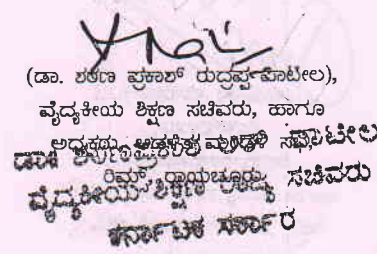 (ಡಾ. ಶರಣ ಪ್ರಕಾಶ್ ರುದ್ರಪ್ಪ ಪಾಟೀಲ),
ವೈದ್ಯಕೀಯ ಶಿಕ್ಷಣ ಸಚಿವರು, ಹಾಗೂ
ಅಧ್ಯಕ್ಷರು, ಆಡಳಿತ ಮಂಡಳಿ ಸಭೆ,
ರಿಮ್ಸ್, ರಾಯಚೂರು
ಡಾ॥ ಪಾಟೀಲ
ವೈದ್ಯಕೀಯ ಶಿಕ್ಷಣ ಸಚಿವರು
ಕರ್ನಾಟಕ ಸರ್ಕಾರ